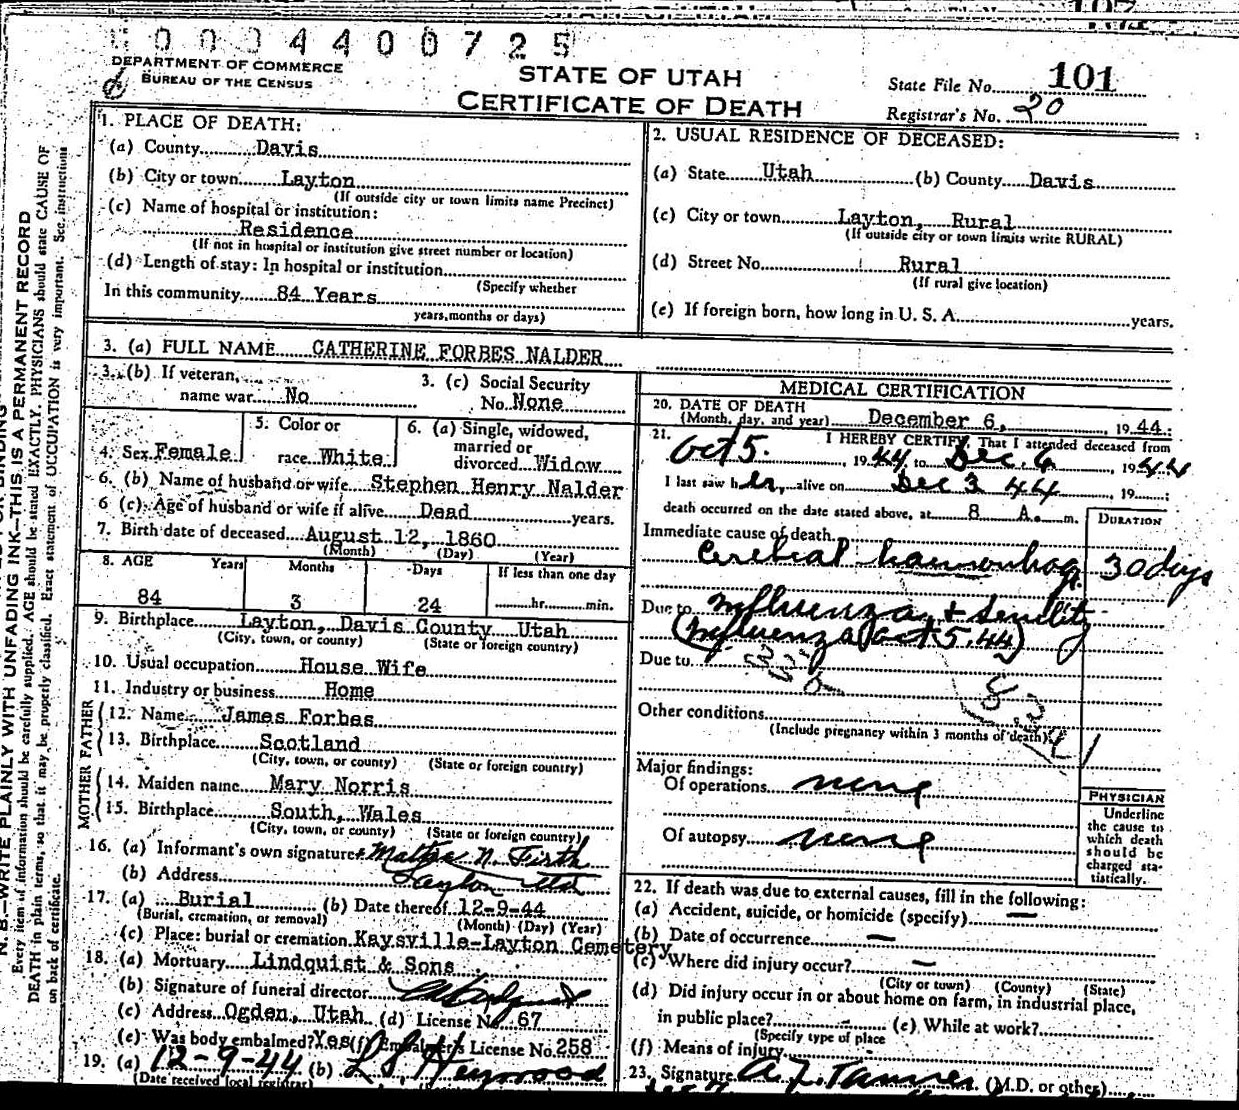 0004400725
DEPARTMENT OF COMMERCE
BUREAU OF THE CENSUS
STATE OF UTAH
CERTIFICATE OF DEATH
State File No. 101
Registrar's No. 20
N. B.—WRITE PLAINLY WITH UNFADING INK—THIS IS A PERMANENT RECORD
Every item of information should be carefully supplied. AGE should be stated EXACTLY. PHYSICIANS should state CAUSE OF
DEATH in plain terms, so that it may be properly classified. Exact statement of OCCUPATION is very important. See instructions
on back of certificate.
1. PLACE OF DEATH:
(a) County Davis
(b) City or town Layton
(If outside city or town limits name Precinct)
(c) Name of hospital or institution:
Residence
(If not in hospital or institution give street number or location)
(d) Length of stay: In hospital or institution
(Specify whether
In this community 84 Years
years, months or days)
2. USUAL RESIDENCE OF DECEASED:
(a) State Utah (b) County Davis
(c) City or town Layton, Rural
(If outside city or town limits write RURAL)
(d) Street No. Rural
(If rural give location)
(e) If foreign born, how long in U. S. A. years.
3. (a) FULL NAME CATHERINE FORBES NALDER
3. (b) If veteran,
name war No
3. (c) Social Security
No. None
4. Sex Female
5. Color or
race White
6. (a) Single, widowed,
married or
divorced Widow
6. (b) Name of husband or wife Stephen Henry Nalder
6 (c) Age of husband or wife if alive Dead years.
7. Birth date of deceased August 12, 1860
(Month) (Day) (Year)
8. AGE Years Months Days If less than one day
84 3 24 hr. min.
9. Birthplace Layton, Davis County Utah
(City, town, or county) (State or foreign country)
10. Usual occupation House Wife
11. Industry or business Home
FATHER
12. Name James Forbes
13. Birthplace Scotland
(City, town, or county) (State or foreign country)
MOTHER
14. Maiden name Mary Norris
15. Birthplace South, Wales
(City, town, or county) (State or foreign country)
16. (a) Informant's own signature N. Firth
(b) Address Layton Utah
17. (a) Burial (b) Date thereof 12-9-44
(Burial, cremation, or removal) (Month) (Day) (Year)
(c) Place: burial or cremation Kaysville-Layton Cemetery
18. (a) Mortuary Lindquist & Sons
(b) Signature of funeral director
(c) Address Ogden, Utah (d) License No. 67
(e) Was body embalmed? Yes (f) Embalmer's License No. 258
19. (a) 12-9-44 (b) L S Heywood
(Date received local registrar)
MEDICAL CERTIFICATION
20. DATE OF DEATH
(Month, day, and year) December 6, 1944:
21. I HEREBY CERTIFY, That I attended deceased from
Oct 5. 1944 to Dec. 6 1944
I last saw her, alive on Dec 3 44, 19 ;
death occurred on the date stated above, at 8 A. m.
DURATION
Immediate cause of death
Cerebral haemorrhage 30 days
Due to Influenza + Senility
(Influenza Oct 5.44)
Due to
Other conditions
(Include pregnancy within 3 months of death)
Major findings:
Of operations none
Of autopsy none
PHYSICIAN
Underline
the cause to
which death
should be
charged sta-
tistically.
22. If death was due to external causes, fill in the following:
(a) Accident, suicide, or homicide (specify) —
(b) Date of occurrence —
(c) Where did injury occur? —
(City or town) (County) (State)
(d) Did injury occur in or about home on farm, in industrial place,
in public place? (e) While at work?
(Specify type of place
(f) Means of injury
23. Signature A. Z. Tanner (M.D. or other)